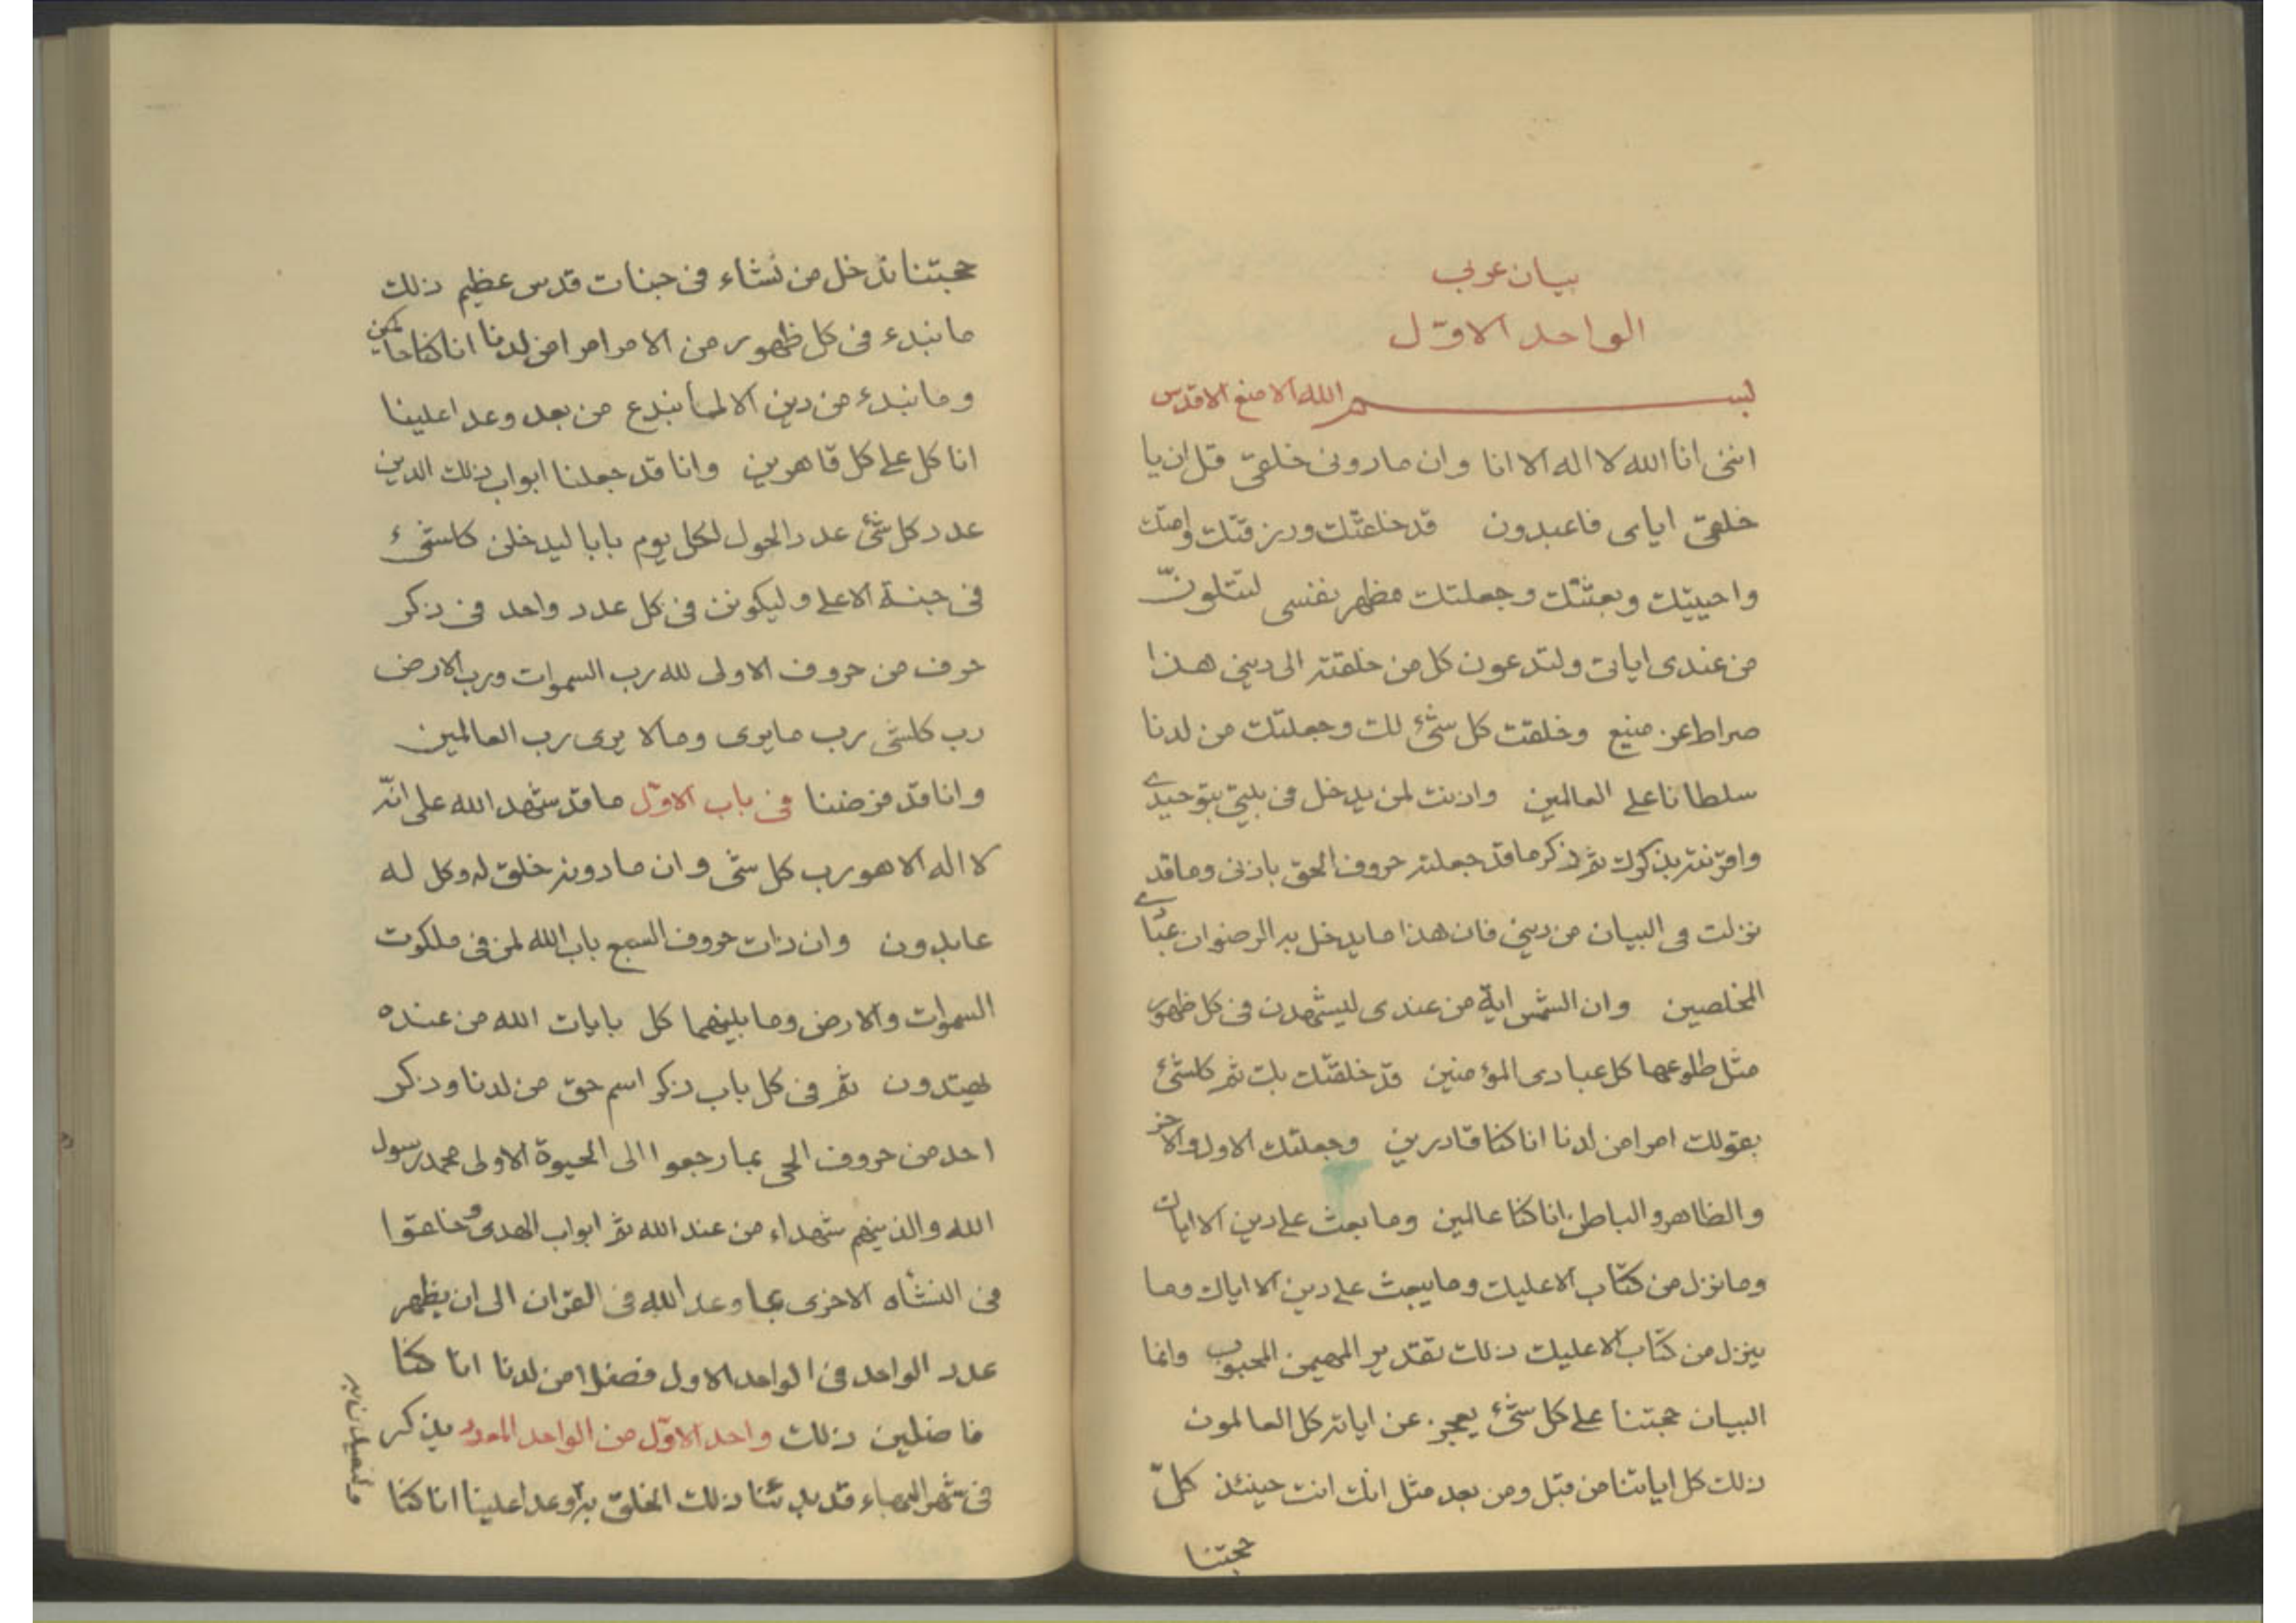 بيان عربى
الواحد الاوّل
بسم الله الامنع الاقدس
اننى انا الله لا اله الا انا وان مادونى خلقى قل ان يا
خلقى اياى فاعبدون قد خلقتك ورزقتك وامتك
واحييتك وبعثتك وجعلتك مظهر نفسى لتتلونّ
من عندى اياتى ولتدعون كل من خلقته الى دينى هذا
صراط عز منيع وخلقت كل شئ لك وجعلتك من لدنا
سلطانا على العالمين واذنت لمن يدخل فى بيتى بتوحيدى
واقرنته بذكرك ثم ذكر ما قد جعلته حروف الحق باذنى وما قد
نزلت فى البيان من دينى فان هذا ما يدخل به الرضوان عبادى
المخلصين وان الشمس اية من عندى ليشهدن فى كل ظهور
مثل طلوعها كل عبادى المؤمنين قد خلقتك بك ثم كلشئ
بقولك امرا من لدنا انا كنا قادرين وجعلتك الاول والاخر
والظاهر والباطن انا كنا عالمين وما بعث على دين الا اياك
وما نزل من كتاب الا عليك وما يبعث على دين الا اياك وما
ينزل من كتاب الا عليك ذلك تقدير المهيمن المحبوب وانما
البيان حجتنا على كل شئ يعجز عن اياته كل العالمون
ذلك كل اياتنا من قبل ومن بعد مثل انك انت حينئذ كلّ
حجتنا
حجتنا ندخل من نشاء فى جنات قدس عظيم ذلك
ما نبدء فى كل ظهور من الامر امرا من لدنا انا كنا حاكمين
وما نبدء من دين الا لما نبدع من بعد وعدا علينا
انا كل على كل قاهرين وانا قد جعلنا ابواب ذلك الدين
عدد كل شئ عدد الحول لكل يوم بابا ليدخلن كلشئ
فى جنة الاعلى وليكونن فى كل عدد واحد فى ذكر
حرف من حروف الاولى لله رب السموات ورب الارض
رب كلشى رب ما يرى وما لا يرى رب العالمين
وانا قد فرضنا فى باب الاوّل ما قد شهد الله على انّه
لا اله الا هو رب كل شى وان مادونه خلق له وكل له
عابدون وان ذات حروف السبع باب الله لمن فى ملكوت
السموات والارض وما بينهما كل بايات الله من عنده
يهتدون ثم فى كل باب ذكر اسم حق من لدنا وذكر
احد من حروف الحى بما رجعوا الى الحيوة الاولى محمد رسول
الله والذينهم شهداء من عند الله ثم ابواب الهدى وخلقوا
فى النشأه الاخرى بما وعد الله فى القران الى ان يظهر
عدد الواحد فى الواحد الاول فضلا من لدنا انا كنا
فاضلين ذلك واحد الاوّل من الواحد المعدد يذكر
فى شهر البهاء قد بدئنا ذلك الخلق به وعدا علينا انا كنا